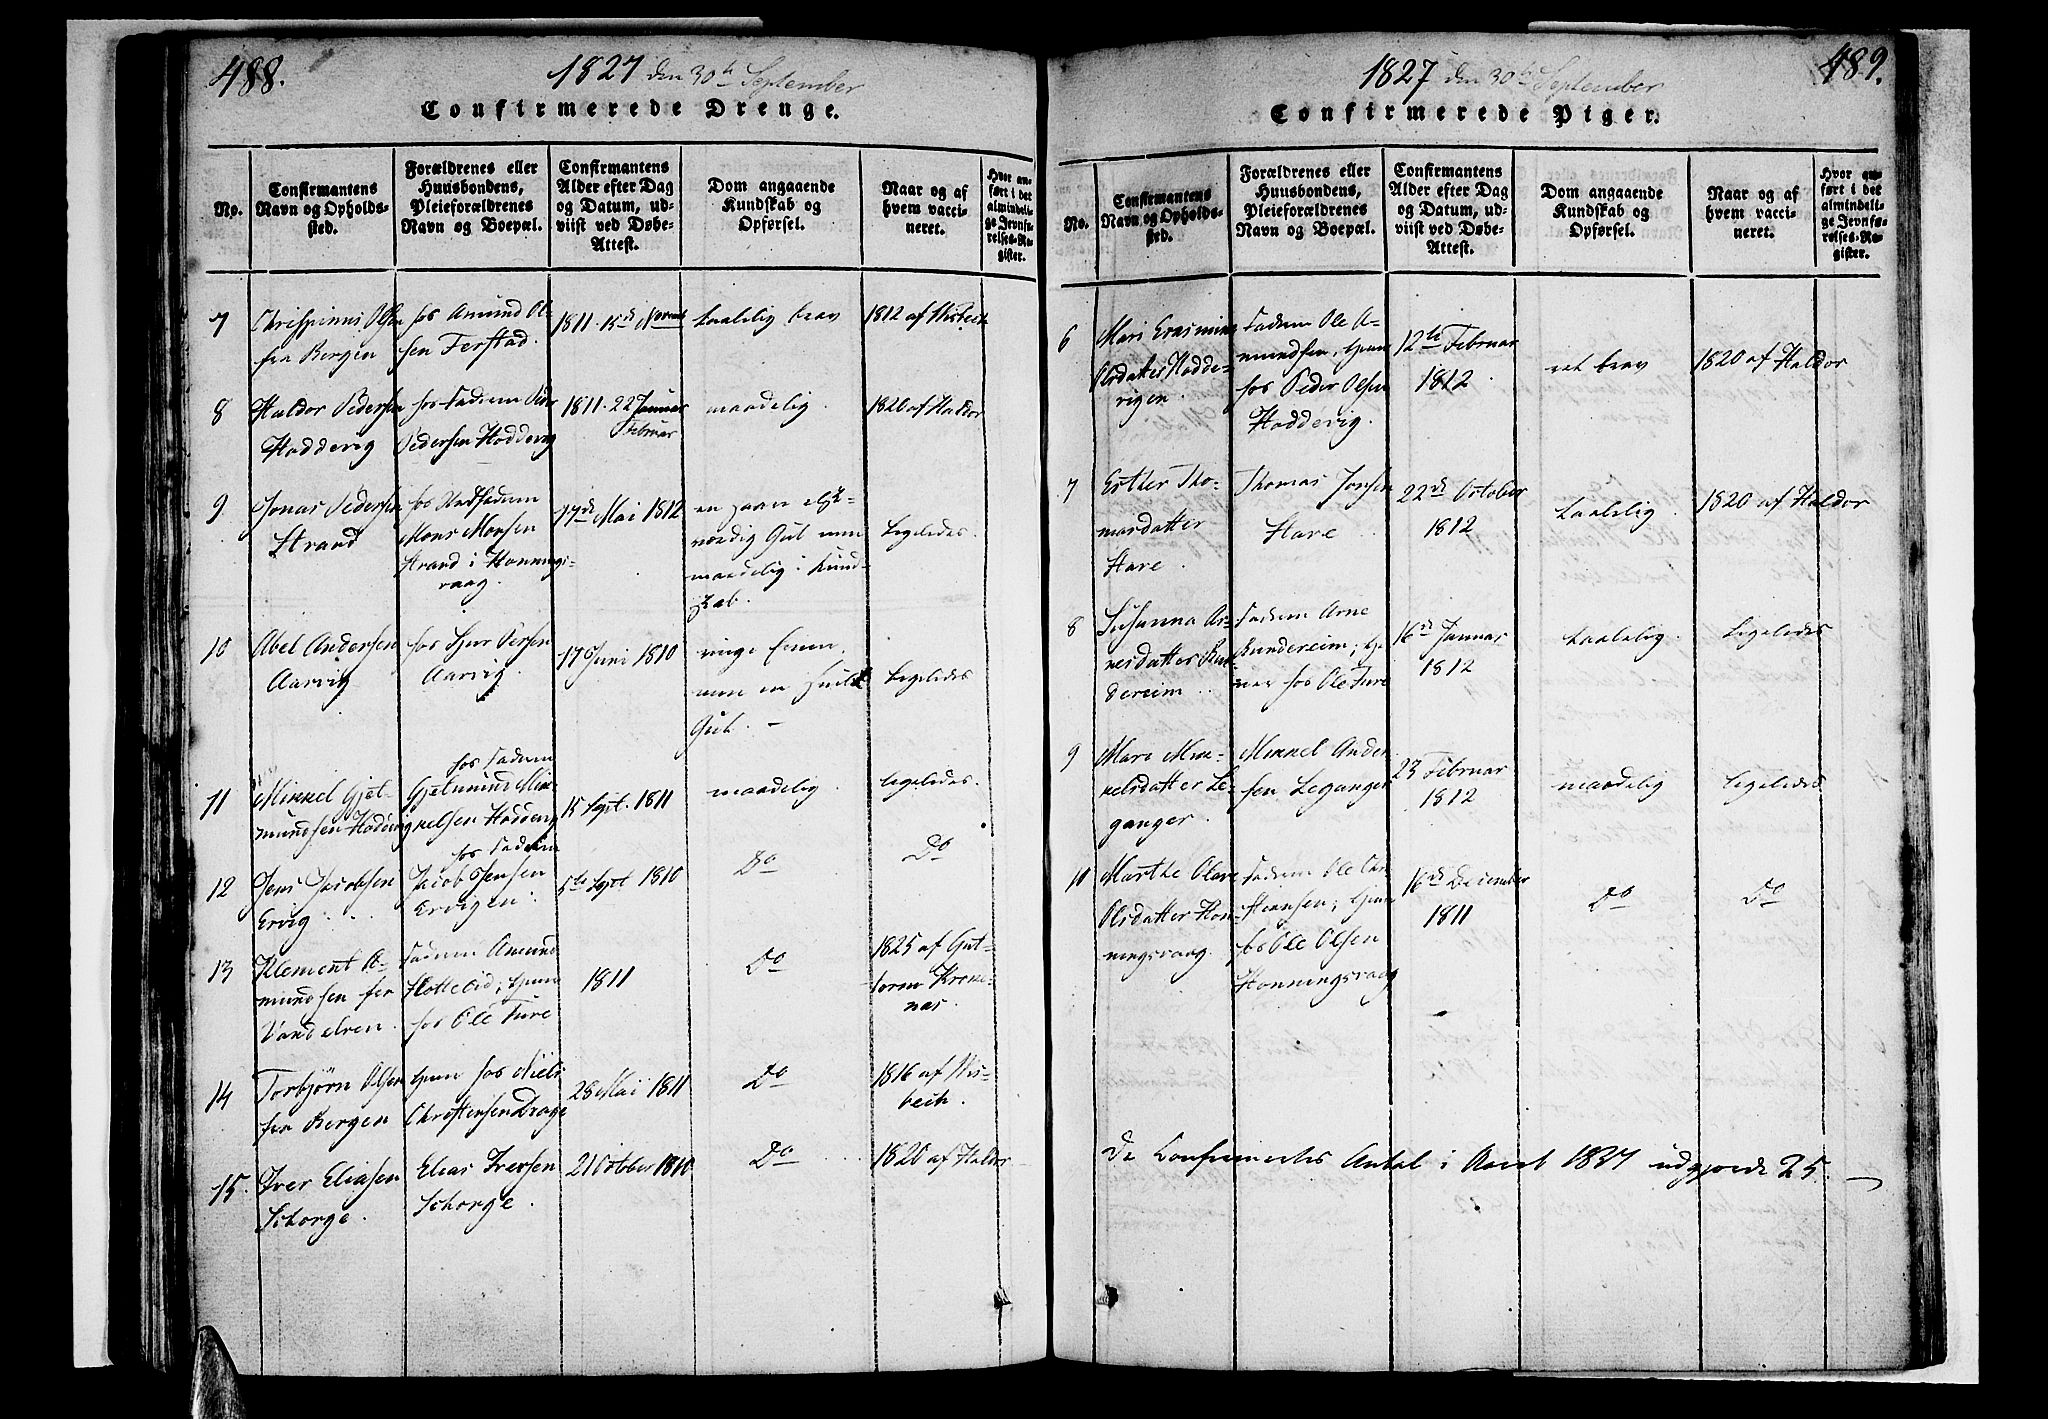 488.
1827 den 30te September
Confirmerede Drenge.
No.
Confirmantens
Navn og Opholds-
sted.
Forældrenes eller
Huusbondens,
Pleieforældrenes
Navn og Boepæl.
Confirmantens
Alder efter Dag
og Datum, ud-
viist ved Døbe-
Attest.
Dom angaaende
Kundskab og
Opførsel.
Naar og af
hvem vacci-
neret.
Hvor an-
ført i det
almindeli-
ge Jevnfø-
relses-Re-
gister.
7
Chrispinus Olsen
fra Bergen
hos Amund Ol-
sen Ferstad.
1811. 15de Novemb
taalelig brav
1812 af Nisbech
8
Haldor Pedersen
Hoddevig
hos Faderen Peder
Pedersen Hoddevig
1811. 22 Januar
Februar
maadelig.
1820 af Haldor
9
Jonas Pedersen
Strand
hos Stedfaderen
Mons Monsen
Strand i Honnings-
vaag.
17de Mai 1812
en gaare elsk-
værdig Gut men
maadelig i Kund-
skab.
Ligeledes.
10
Abel Andersen
Aarvig
hos Siur Persen
Aarvig.
17 Juni 1810
ringe Evner,
men en skik
Gut. –
Ligeledes
11
Mikkel Gjel-
mundsen Hodevig
hos Faderen
Gjelmund Mik-
kelsen Hoddevig
15 Sept. 1811
maadelig.
Ligeledes.
12
Jens Jacobsen
Ervig
hos Faderen
Jacob Jensen
Ervigen.
5te Sept 1810
Do
Do
13
Klement A-
mundsen fra
Vandelven.
Faderen Amund
Flotteeid; tjener
hos Ole Fure
1811
Do
1825 af Gut-
torm Krome-
nas.
14
Torbjørn Olsen
fra Bergen
tjener hos Niels
Christensen Drage
28 Mai 1811
Do
1816 af Nis-
bech.
15.
Iver Eliasen
Schorge.
Elias Iversen
Schorge.
21 Octber 1810
Do
1820 af Haldor
489.
1827 den 30te September
Confirmerede Piger.
No.
Confirmantens
Navn og Opholds-
sted.
Forældrenes eller
Huusbondens,
Pleieforældrenes
Navn og Boepæl.
Confirmantens
Alder efter Dag
og Datum, ud-
viist ved Døbe-
Attest.
Dom angaaende
Kundskab og
Opførsel.
Naar og af
hvem vacci-
neret.
Hvor an-
ført i det
almindeli-
ge Jevnfø-
relses-Re-
gister.
6
Mari Erasmine
Olsdatter Hodde-
vigen.
Faderen Ole A-
mundsen, tjener
hos Peder Olsen
Hoddevig.
12te Februar
1812
ret brav
1820 af Haldor
7
Esther Tho-
masdatter
Stare.
Thomas Jonsen
Stare
22de October
1812
taalelig
1820 af Haldor
8
Susanna Ar-
nesdatter Run-
dereim
Faderen Arne
Rundereim; tje-
ner hos Ole Fure
16de Januar
1812
taalelig.
Ligeledes
9
Mari Mik-
kelsdatter Le-
ganger.
Mikkel Ander-
sen Leganger
23 Februar
1812
maadelig
Ligeledes
10
Marthe Olave
Olsdatter Hon-
ningsvaag.
Faderen Ole Chri-
stensen; tjener
hos Ole Olsen
Honningsvaag
16de December
1811
Do
Do
De Confirmertes Antal i Aaret 1827 udgjorde 25.